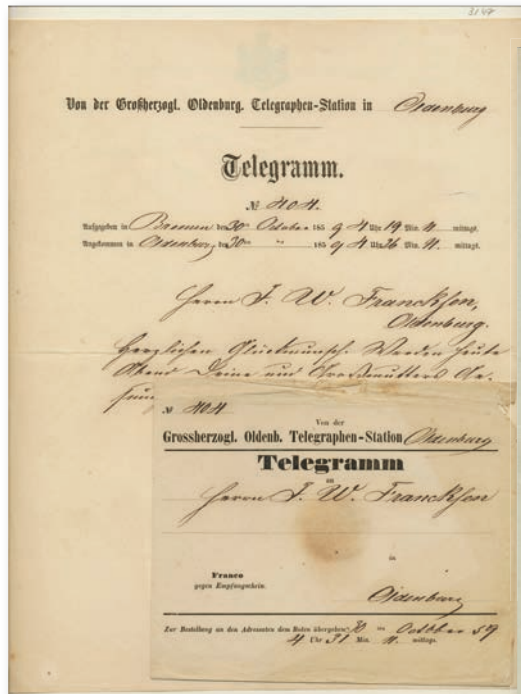 3148
Von der Großherzogl. Oldenburg. Telegraphen-Station in Oldenburg
Telegramm.
№ 404.
Aufgegeben in Bremen den 30ten October 1859 4 Uhr 19 Min. N. mittags.
Angekommen in Oldenburg den 30ten " 1859 4 Uhr 26 Min. N. mittags.
Herrn F. W. Franckson,
Oldenburg.
Herzlichen Glückwunsch. Werden heute
Abend Deine und Großmutters Ge-
№ 404
Von der
Grossherzogl. Oldenb. Telegraphen-Station Oldenburg
Telegramm
an
Herrn F. W. Franckson
in
Franco
gegen Empfangschein.
Oldenburg
Zur Bestellung an den Adressaten dem Boten übergeben: 30 ten October 59
4 Uhr 31 Min. N. mittags.